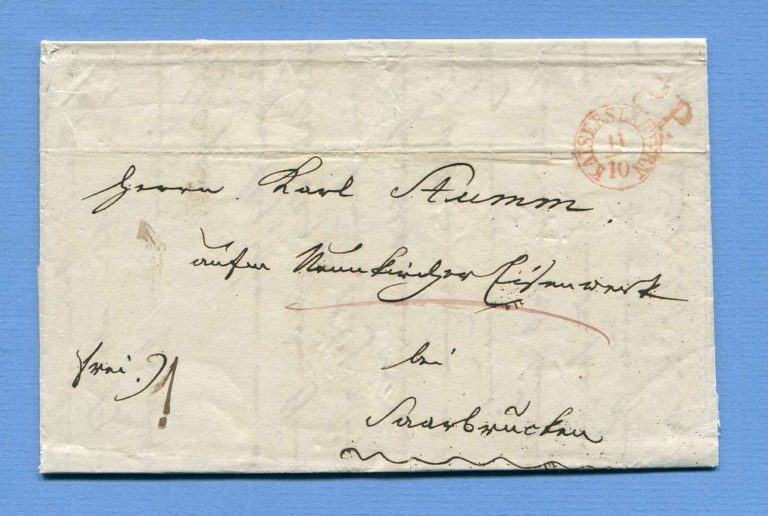 P.P.
KAISERSLAUTERN
11
10
Herrn Karl Stumm
aufm Neunkircher Eisenwerk
bei
frei.
Saarbrücken